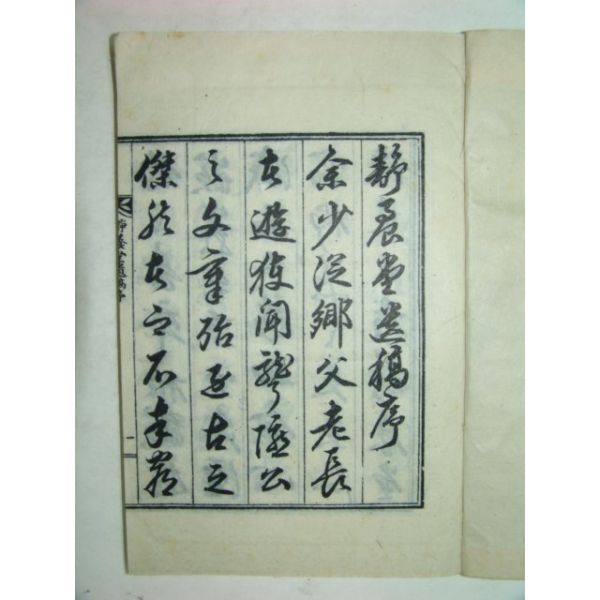 靜養堂遺稿序
余少從鄕父老長
者遊獲聞聾隱公
之文章殆近古之
傑然者不幸
靜養堂遺稿序
一